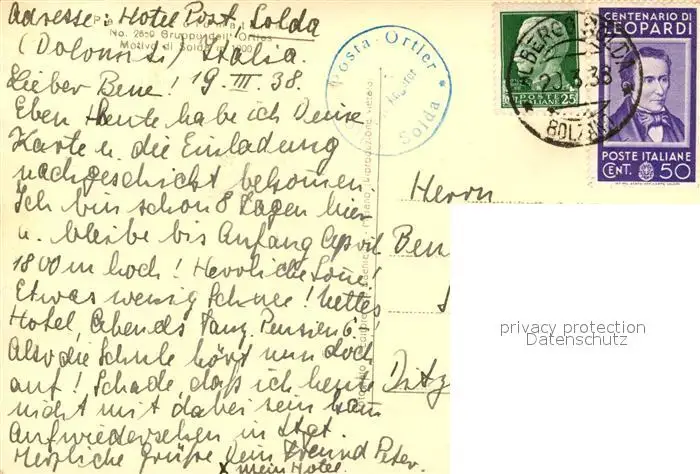 Adresse: Hotel Post, Solda
No. 2869 Gruppo dell'Ortles
(Dolomiti) Italia.
Motivo di Solda m 1900
Lieber Bene! 19. III. 38.
Eben heute habe ich Deine
Karte u. die Einladung
nachgeschickt bekommen.
Ich bin schon 8 Tagen hier
u. bleibe bis Anfang April
1800 m hoch! Herrliche
Etwas wenig Schnee! Nettes
Hotel, Abends Tanz, Pension 6!
Also die Schule hört nun doch
auf! Schade, daß ich heute
nicht mit dabei sein kann
Aufwiedersehen in Stgt.
Herzliche Grüße Dein Freund Peter.
x mein Hotel
Posta-Ortler
Solda
POSTE ITALIANE 25
CENTENARIO DI
LEOPARDI
POSTE ITALIANE
CENT. 50
ALBERGO SOLDA
20.3.38
BOLZANO
Herrn
Ben
Ditz
privacy protection
Datenschutz